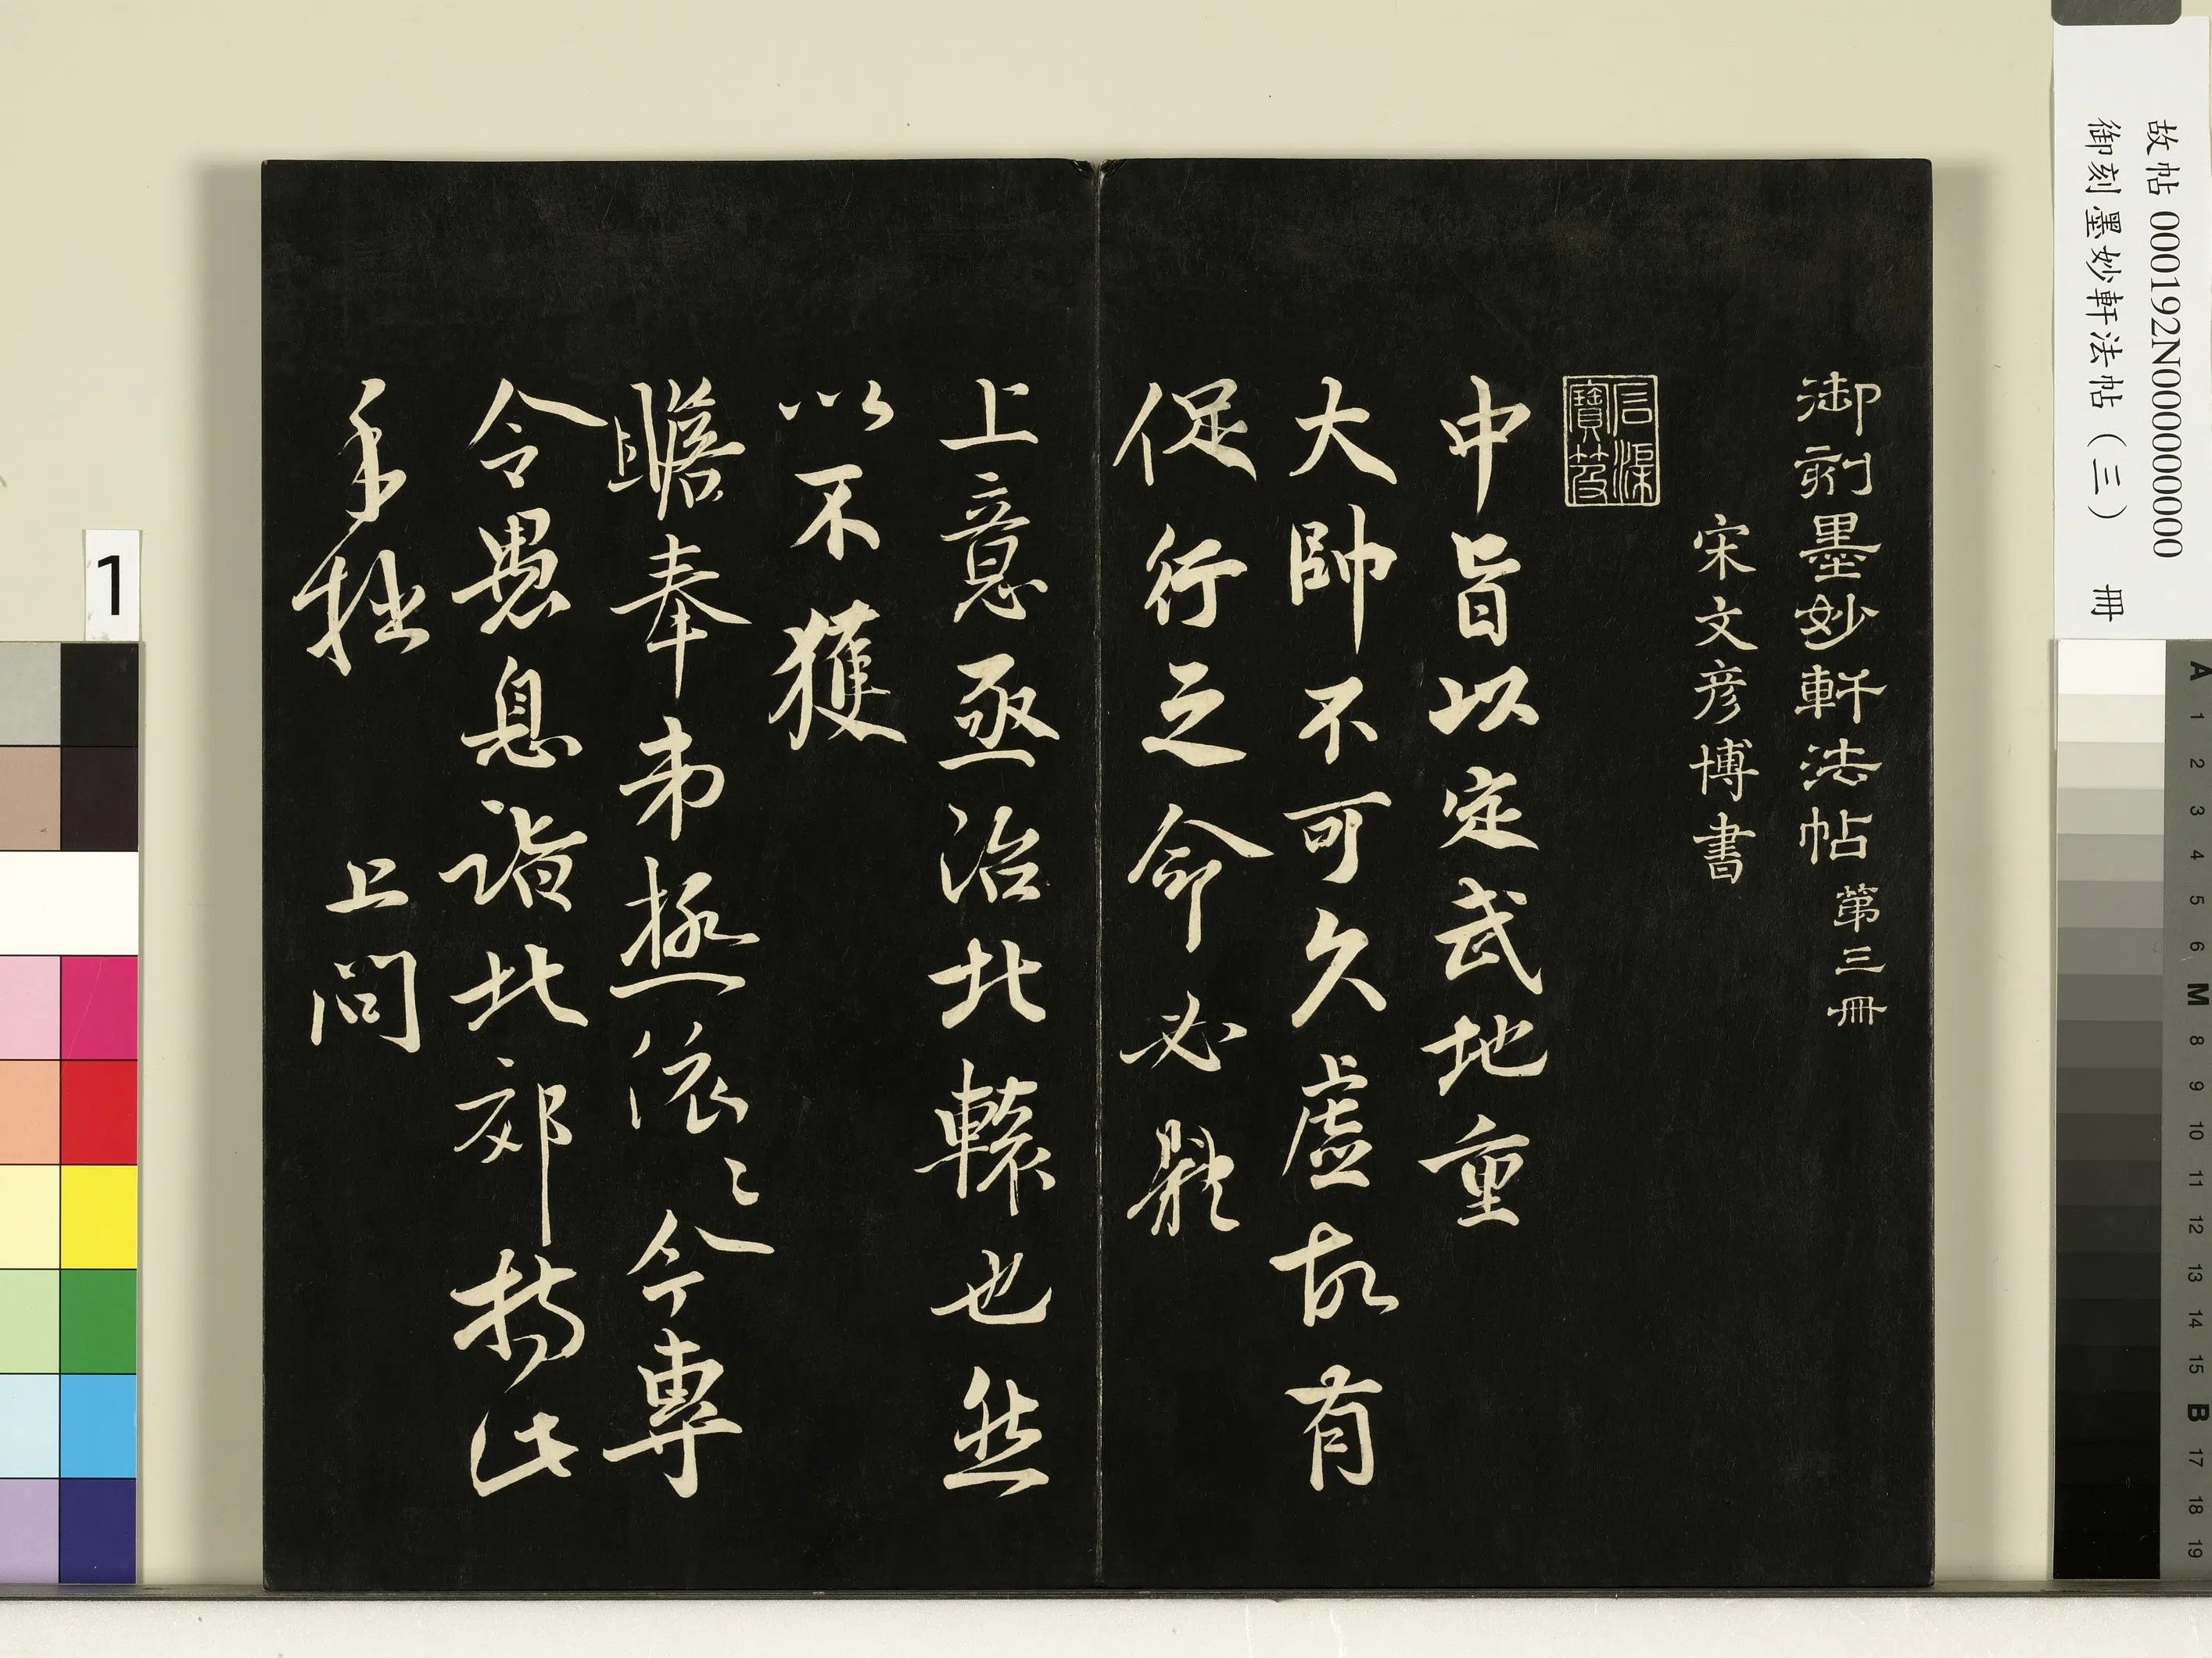 故帖 000192N000000000
御刻墨妙軒法帖（三） 冊
御刻墨妙軒法帖 第三冊
宋文彦博書
石渠寶笈
中旨以定武地重
大帥不可久虛故有
促行之命必體
上意亟治北轅也然
以不獲
瞻奉弟極依〻今專
令愚息詣北郊持此
手拙 上問
1
A 1 2 3 4 5 6 M 8 9 10 11 12 13 14 15 B 17 18 19